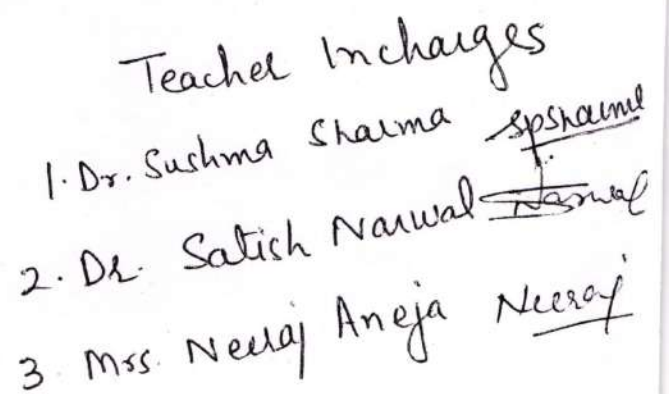 Teacher Incharges
1. Dr. Sushma Sharma spsharma
2. Dr. Satish Narwal Narwal
3 Mrs. Neeraj Aneja Neeraj